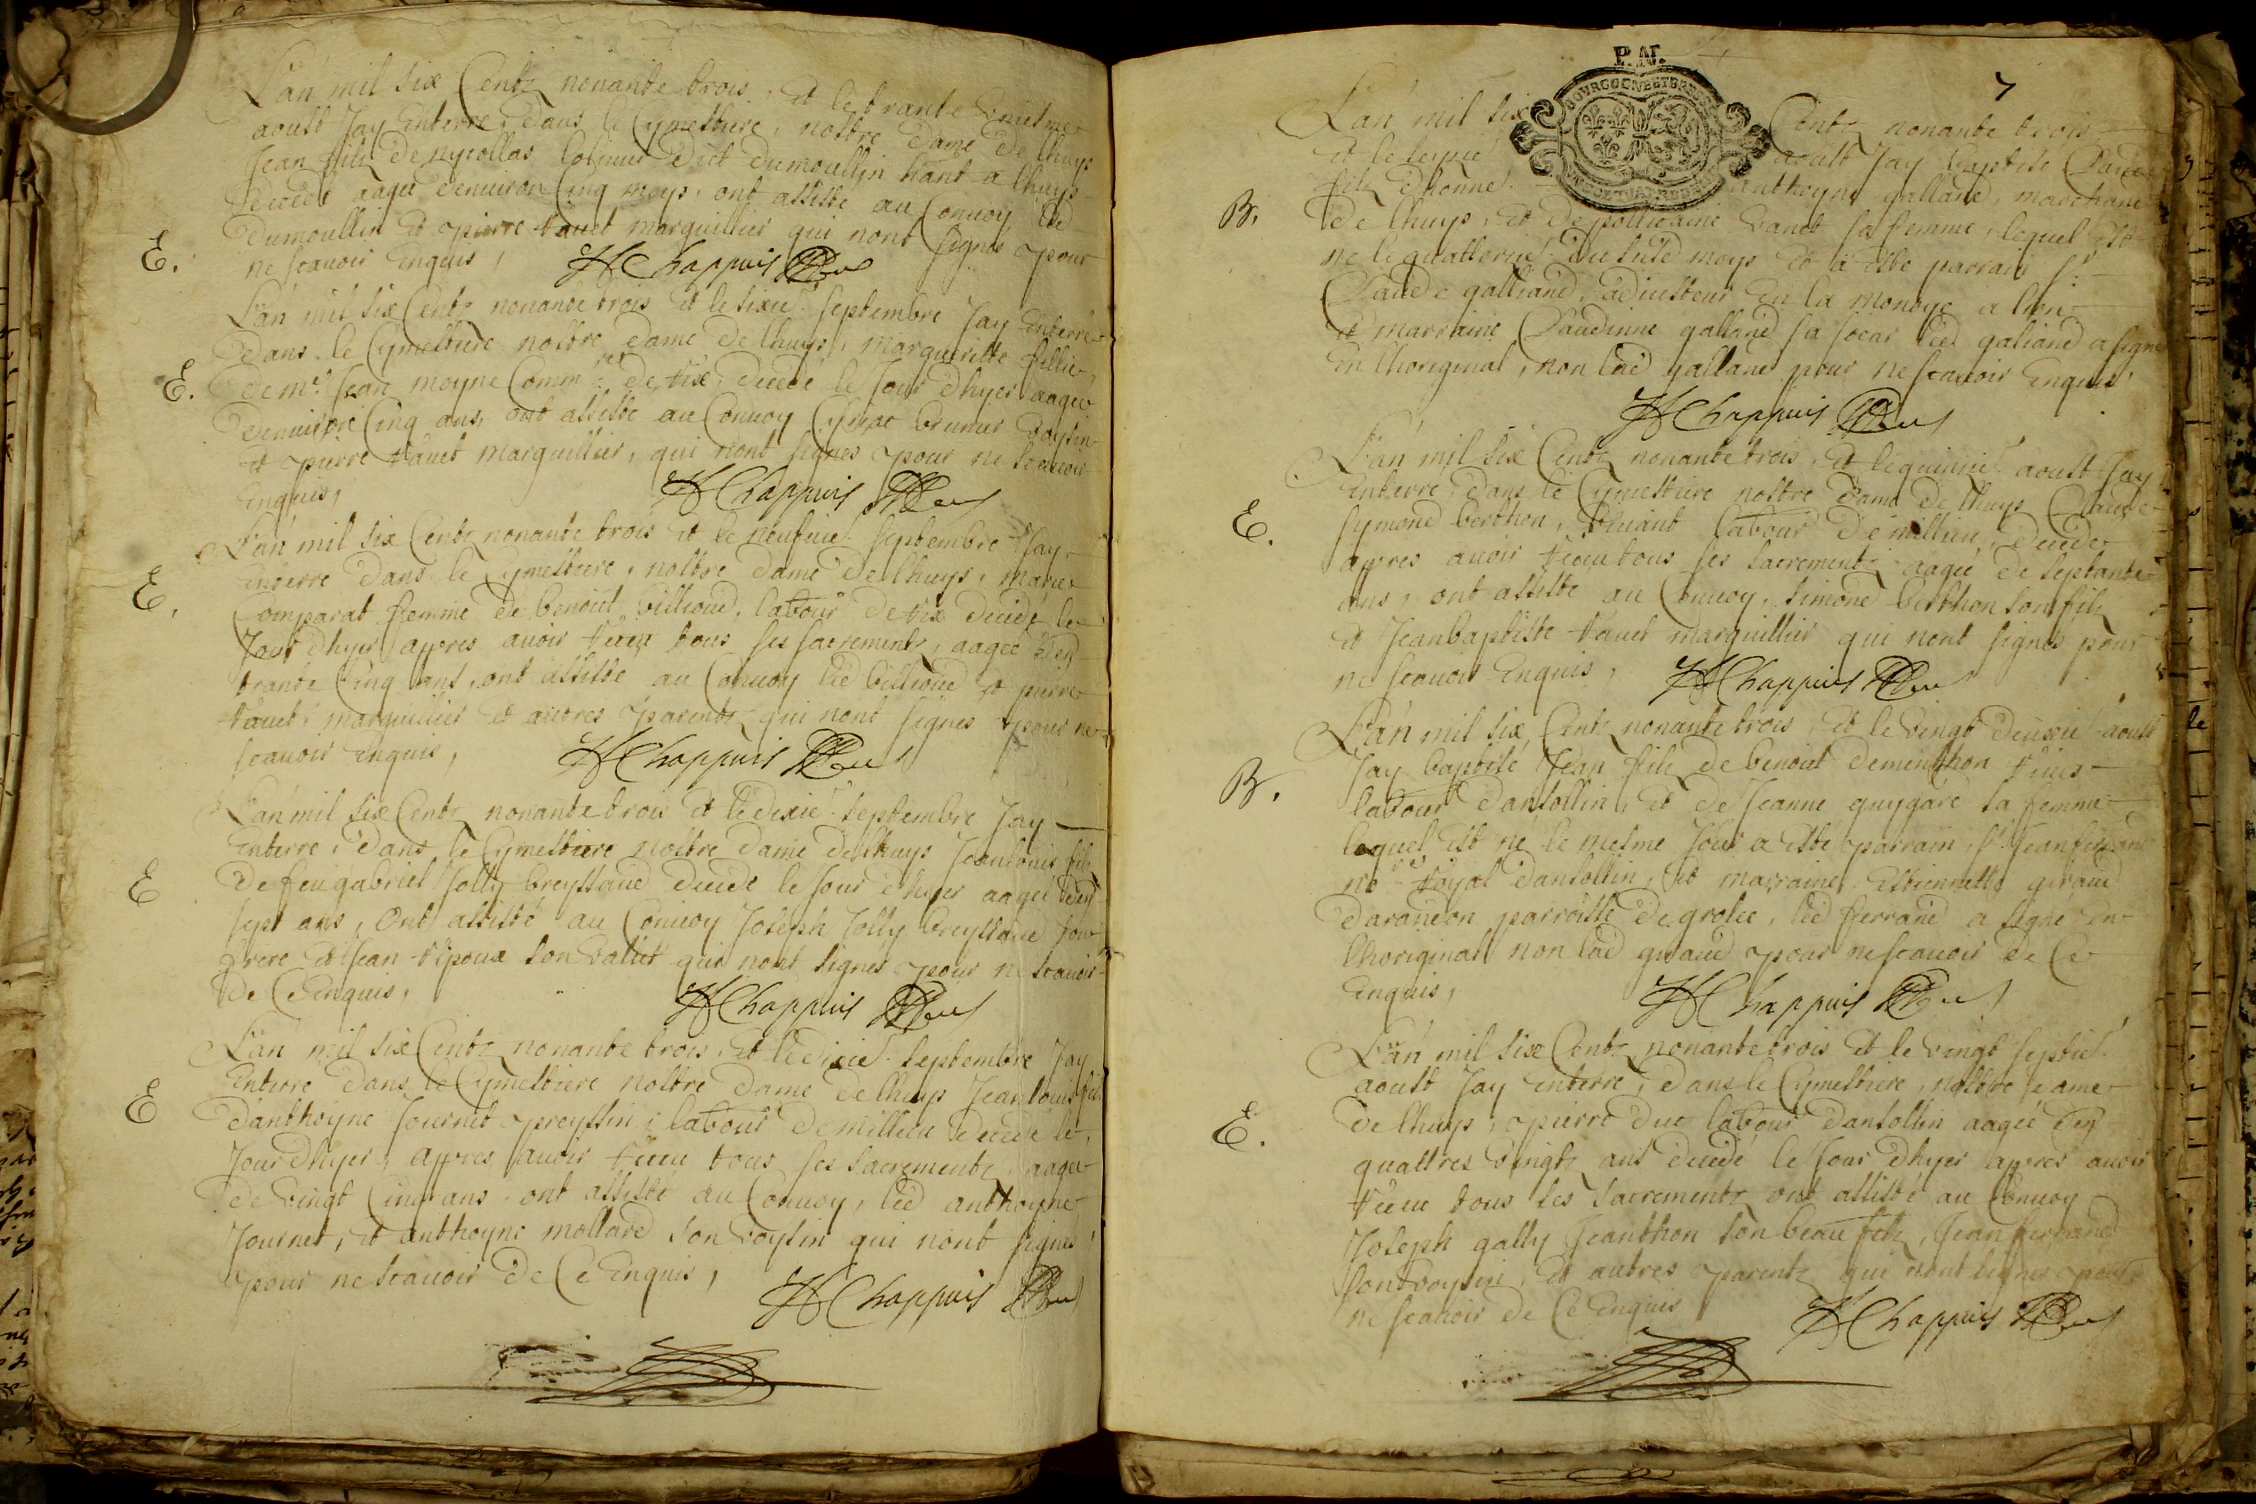 L'an mil six Centz nonante trois, et le trante uniesme
aoust Jay Enterre, dans le Cymettiere, nostre Dame de lhuys
Jean filz de nycollas Dict dumoullin hant a lhuys
decedé aagé denuiron Cinq moys, ont assisté au Conuoy led
dumoullin et pierre marguillier qui nont signés pour
E.
ne scauoir Enquis, HChappuis
L'an mil six Centz nonante trois et le sixie septembre Jay Enterré
dans le Cymettiere nostre dame de lhuys, margueritte fillie
E.
de me Jean moyne Comm.re de decedé le Jour dhyer aagée
denuiron Cinq ans, ont assisté au Conuoy brunier voysin
et pierre marguillier, qui nont signés pour ne scauoir
Enquis, HChappuis
L'an mil six Centz nonante trois et le neufuie septembre Jay
enterre dans le Cymettiere, nostre dame de lhuys, marie
E.
Comparat femme de benoict billioud, labour de decedé le
Jour dhyer appres auoir receu tous ses sacrements, aagée den
trante Cinq ans, ont assisté au Conuoy led billioud et pierre
marguillier et autres parentz qui nont signés pour ne
scauoir enquis, HChappuis
L'an mil six Centz nonante trois et le dixie septembre Jay
Enterre, dans le Cymettiere nostre dame de lhuys Jean louis filz
E
de feu gabriel Jolly breyssand decedé le Jour dhyer aagé den
sept ans, Ont assisté au Conuoy Joseph Jolly breyssand son
frere et Jean son vallet qui nont signés pour ne scauoir
de Ce Enquis, HChappuis
L'an mil six Centz nonante trois, et le dixie septembre Jay
Enterre dans le Cymettiere nostre Dame de lhuys Jean louis filz
E
danthoyne Journet preyssin, labour de millieu decedé le
Jour dhyer, appres auoir receu tous ses sacrementz, aagé
de vingt Cinq ans ont assisté au Conuoy, led anthoyne
Journet, et anthoyne mollard son voysin qui nont signés
pour ne scauoir de Ce Enquis, HChappuis
7
L'an mil six Centz nonante trois
et le aoust Jay baptisé Claude
filz dhonne. anthoyne galland, marchand
B.
de lhuys, et de sa femme, lequel est
ne le quattorzie dudict moys et a esté parrain sr
Claude galliand, adiusteur En la monoye a lion
et marraine Claudinne galland sa soeur led galiand a signé
En lhoriginal, non lad galland pour ne scauoir Enquis
HChappuis
L'an mil six Centz nonante trois, et le quinzie aoust Jay
Enterre, dans le Cymettiere nostre Dame de lhuys Claude
E.
symond berthon, viuant labour de millieu, decedé
appres auoir receu tous ses sacrementz aagé de septante
ans, ont assisté au Conuoy, simond berthon son filz
et Jean baptiste marguillier qui nont signés pour
ne scauoir Enquis, HChappuis
L'an mil six Centz nonante trois, et le vingt deuxie aoust
B.
Jay baptisé Jean filz de benoict deminthon
labour dansollin, et de Jeanne guygard sa femme
lequel est ne le mesme Jour a esté parrain, sr Jean ferrand
nore Royal dansollin, et marraine, Estiennette giraud
darandon parroisse de grolée, led ferrand a signé En
lhoriginal non lad giraud pour ne scauoir de Ce
Enquis, HChappuis
L'an mil six Centz nonante trois et le vingt septie
aoust Jay enterre, dans le Cymettiere, nostre Dame
E.
de lhuys, pierre duc labour dansollin aagé den
quattres vingtz ans decedé le Jour dhyer appres auoir
receu tous ses sacrementz ont assisté au Conuoy
Joseph gally Jeanthon son beau filz, Jean ferrand
son voysin, et autres parentz qui nont signés pour
ne scauoir de Ce Enquis HChappuis